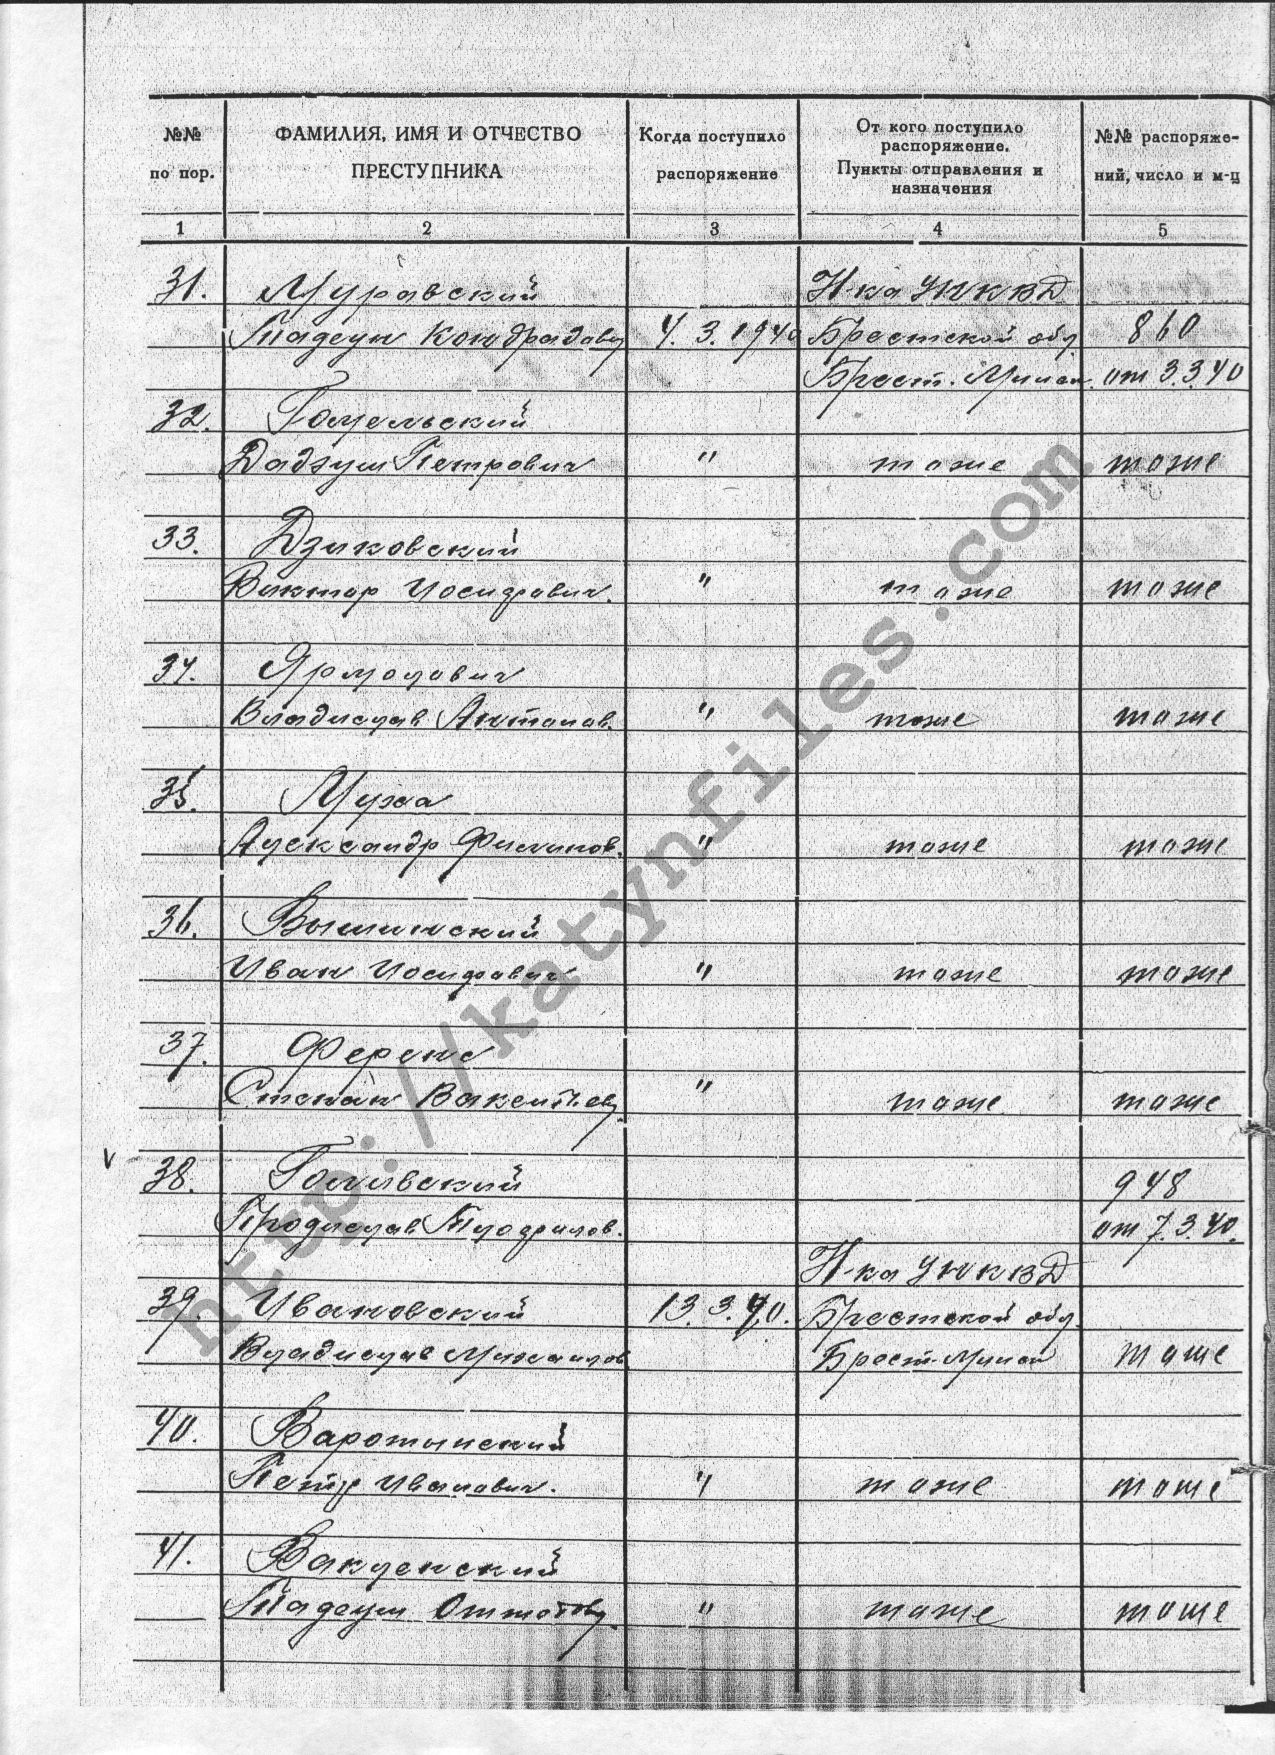 №№ по пор.
ФАМИЛИЯ, ИМЯ И ОТЧЕСТВО ПРЕСТУПНИКА
Когда поступило распоряжение
От кого поступило распоряжение. Пункты отправления и назначения
№№ распоряжений, число и м-ц
1 2 3 4 5
31. Муравский Н-ка УНКВД
Тадеуш Кондрадов 4. 3. 1940 Брестской обл. 860
Брест-Минск. от 3.3.40
32. Гомельский
Дадзуш Петрович " тоже тоже
33. Дзиковский
Виктор Иосифович. " тоже тоже
34. Ярмолович
Владислав Антонов. " тоже тоже
35. Муха
Александр " тоже тоже
36. Вышинский
Иван Иосифович " тоже тоже
37. Ференс
Степан " тоже тоже
v 38. 948
от 7.3.40.
Н-ка УНКВД
39. Ивановский 13. 3. 40. Брестской обл.
Владислав Михайлов Брест-Минск тоже
40. Варотынский
Петр Иванович. " тоже тоже
41. Вакуленский
Тадеуш " тоже тоже
http://katynfiles.com